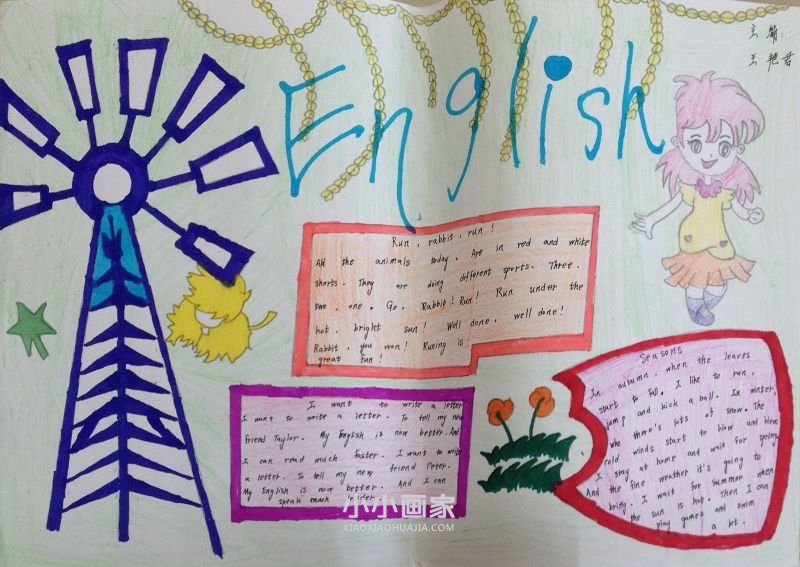 English
主编:
王艳君
Run, rabbit, run!
All the animals today. Are in red and white
shorts. They are doing different sports. Three,
two, one. Go, Rabbit! Run! Run under the
hot, bright sun! Well done, well done!
Rabbit, you won! Runing is
great fun!
I want to write a letter
I want to write a letter. To tell my new
friend Taylor. My English is now better. And
I can read much faster. I want to write
a letter. To tell my new friend Peter.
My English is now better. And I can
speak much
Seasons
In autumn, when the leaves
start to fall. I like to run,
jamp and kick a ball. In winter,
whe there's lots of snow. The
cold winds start to blow and blow.
I stay at home and wait for spring
And the fine weather it's going to
bring. I wait for summer when
the sun is hot. Then I can
play games and swim
a lot.
小小画家
XIAOXIAOHUAJIA.COM